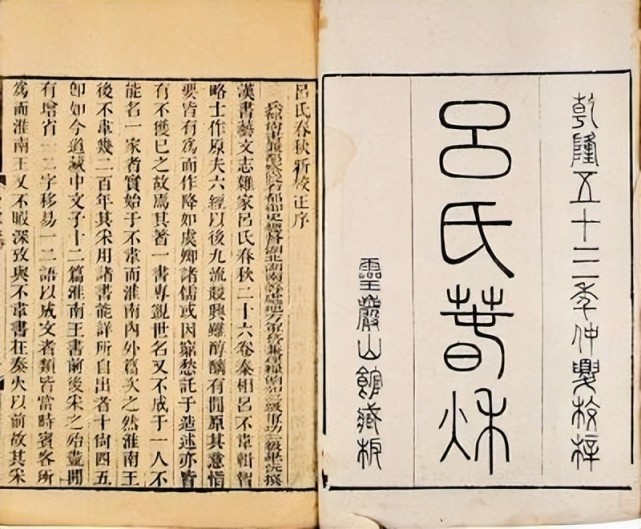 乾隆五十三年仲夏校梓
呂氏春秋
靈巖山館藏板
呂氏春秋新校正序
漢書藝文志雜家呂氏春秋二十六卷秦相呂不韋輯智
略士作原夫六經以後九流競興雖醇醨有閒原其意恉
要皆有爲而作降如虞卿諸儒或因窮愁託于造述亦皆
有不獲巳之故焉其著一書專覬世名又不成于一人不
能名一家者實始于不韋而淮南內外篇次之然淮南王
後不韋幾二百年其采用諸書能詳所自出者十尚四五
卽如今道藏中文子十二篇淮南王書前後采之殆盡閒
有增省一二字移易一二語以成文者類皆當時賓客所
爲而淮南王又不暇深攷與不韋書在秦火以前故其采